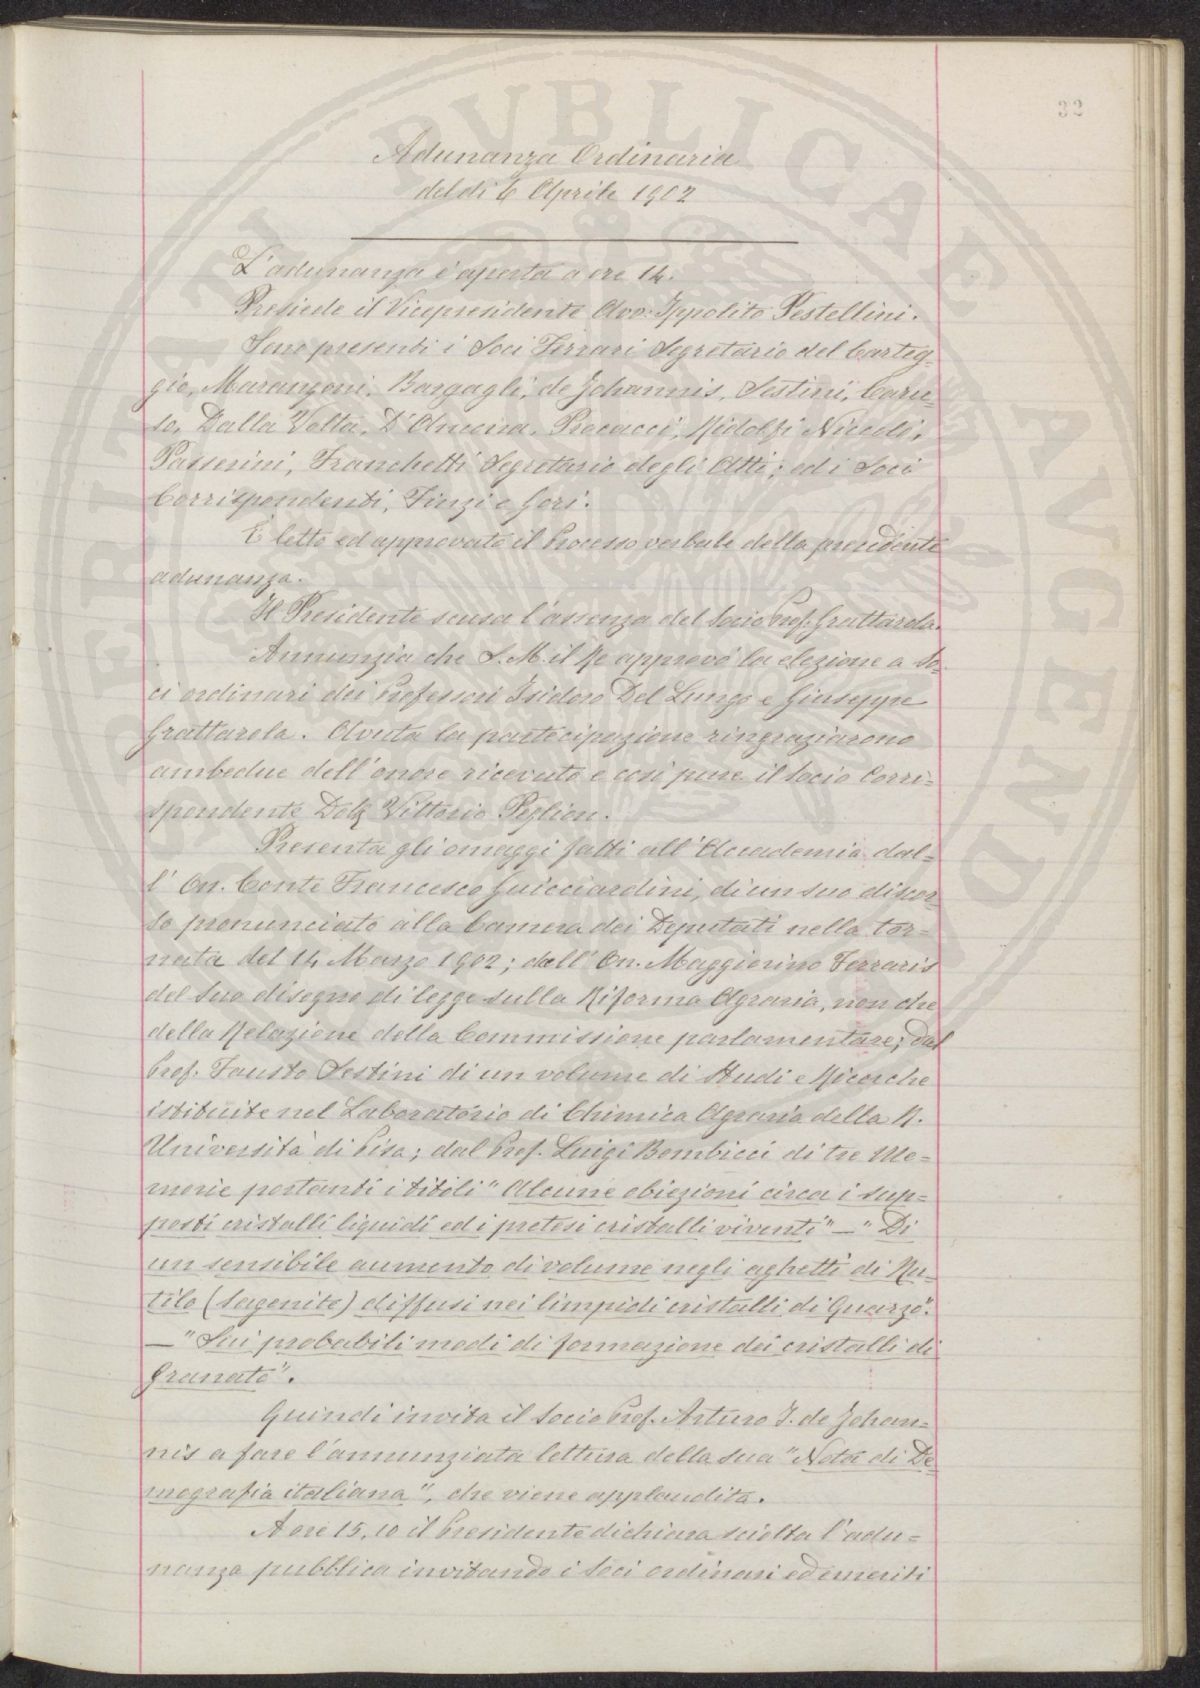 32
Adunanza Ordinaria
del dì 6 Aprile 1902
L'adunanza è aperta a ore 14.
Presiede il Vicepresidente Avv. Ippolito Pestellini.
Sono presenti i Soci Ferrari Segretario del Carteg-
gio, Marangoni, Bargagli, de Johannis, Sestini, Caru-
so, Dalla Volta, D'Ancona, Procacci, Ridolfi, Niccoli,
Passerini, Franchetti Segretario degli Atti; ed i Soci
Corrispondenti, Finzi e Gori.
È letto ed approvato il Processo verbale della precedente
adunanza.
Il Presidente scusa l'assenza del Socio Prof. Grattarola.
Annunzia che S. M. il Re approvò la elezione a So-
ci ordinari dei Professori Isidoro Del Lungo e Giuseppe
Grattarola. Avuta la partecipazione ringraziarono
ambedue dell'onore ricevuto e così pure il Socio Corri-
spondente Dott. Vittorio Peglion.
Presenta gli omaggi fatti all'Accademia dal-
l'On. Conte Francesco Guicciardini, di un suo discor-
so pronunciato alla Camera dei Deputati nella tor-
nata del 14 Marzo 1902; dall'On. Maggiorino Ferraris
del suo disegno di legge sulla Riforma Agraria, non che
della Relazione della Commissione parlamentare; dal
Prof. Fausto Sestini di un volume di Studi e Ricerche
istituite nel Laboratorio di Chimica Agraria della R.
Università di Pisa; dal Prof. Luigi Bombicci di tre Me-
morie portanti i titoli "Alcune obiezioni circa i sup-
posti cristalli liquidi ed i pretesi cristalli viventi" — "Di
un sensibile aumento di volume negli aghetti di Ru-
tilo (Sagenite) diffusi nei limpidi cristalli di Quarzo".
— "Sui probabili modi di formazione dei cristalli di
Granato".
Quindi invita il Socio Prof. Arturo J. de Johan-
nis a fare l'annunziata lettura della sua "Nota di De-
mografia italiana", che viene applaudita.
A ore 15,10 il Presidente dichiara sciolta l'adu-
nanza pubblica invitando i Soci ordinari ed emeriti